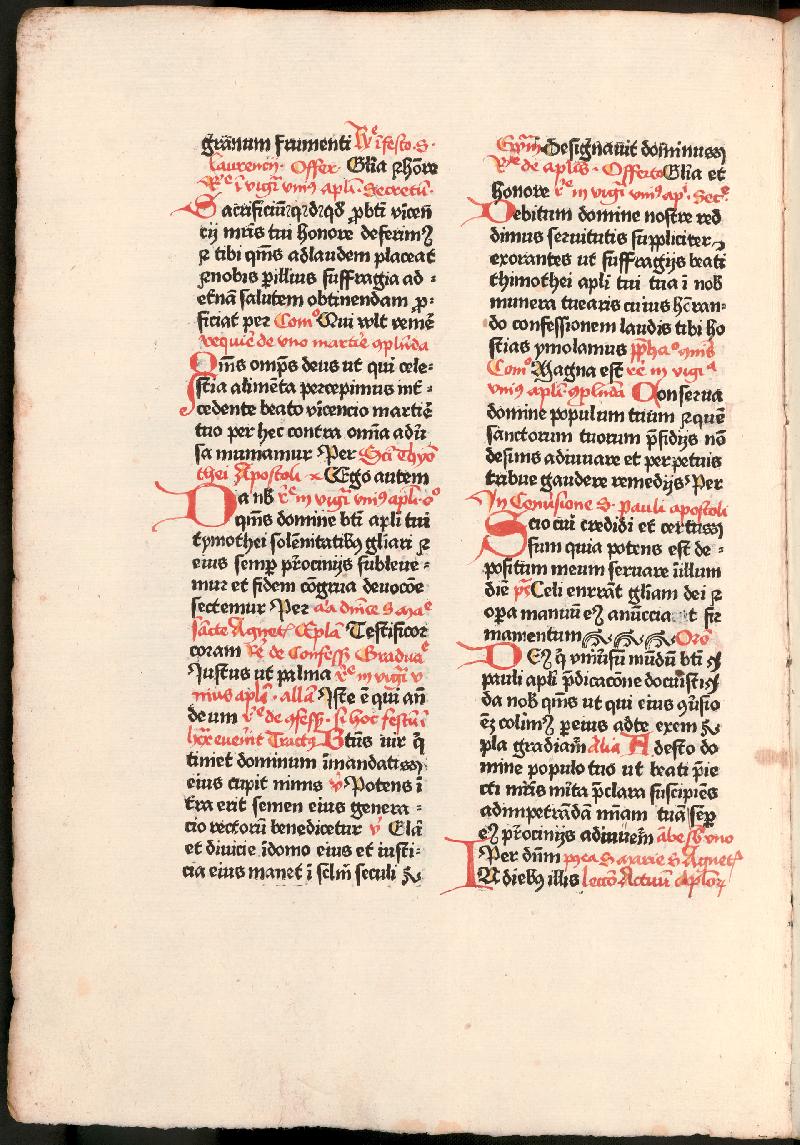 granum frumenti Re i festo S.
Laurencij. Offer. Gl̄ia ⁊ hōre
Re i vigi̅ vni⁹ apli. Secretū.
Sacrificiū qd qs pbti vicen
cij mr̄is tui honore deferim⁹
⁊ tibi qm̄s ad laudem placeat
⁊ nobis p illius suffragia ad
etnā salutem obtinendam p
ficiat per Com̄o Qui vlt venir̄e
require de vno martir̄e ꝯplēda
Qm̄s omp̄s deus ut qui cele
stia alimēta percepimus int̄
cedente beato vicencio martir̄e
tuo per hec contra omīa adūi
sa muniamur Per Sc̄i Thyo
thei Apostoli Ego autem
Da nb̄ re in vigi̅ vni⁹ apli.
qm̄s domine bt̄i apli tui
tymothei solēnitatib⁹ gl̄iari ⁊
eius semp pr̄ocinijs subleue
mur et fidem cōgrua deuocōe
sectemur Per
sācte Agnet̄ Ep̄la Testificor
coram Re de Confess̄ Gradua̅
Justus ut palma re in vigi̅ v
nius apli. all̄a Iste ē qui an̄
deum re de ꝯfess̄. si hoc festū i̅
lxx euenit Tract⁹ Bt̄us uir q̅
timet dominum i mandatis
eius cupit nimis v̄ Potens i̅
tr̄a erit semen eius genera
cio rectorū benedicetur v̄ Gl̄a
et diuicie i domo eius et iusti
cia eius manet i̅ scl̄m seculi
Ewm̄ Designauit dominus
Re de aplis. Offerto Gl̄ia et
honore re in vigi̅ vni⁹ apl̄. Secr̄
Debitum domine nostre red
dimus seruitutis suppliciter
exorantes ut suffragijs beati
thimothei apli tui tua i̅ nob̄
munera tuearis cuius hōran
do confessionem laudis tibi ho
stias ymolamus
Com̄o Magna est re in vigi̅ᵃ
vni⁹ apli ꝯplēda Conserua
domine populum tuum ⁊ quē
sanctorum tuorum p̄sidijs nō
desinis adiuuare et perpetuis
tribue gaudere remedijs Per
In Conūsione S. pauli apostoli
Scio cui credidi et certus
sum quia potens est de
positum meum seruare i̅ illum
diē ps̄ Celi enrr̄āt gl̄iam dei ⁊
opa manuū eꝫ anūcciat fir
mamentum Oro̅
Deꝫ q̅ vniūsū mūdū bt̄i
pauli apli p̄dicacōne docuisti
da nob̄ qm̄s ut qui eius ꝯūsio
ēꝫ colim⁹ p eius ad te exem
pla gradiam̄ Alia Adesto do
mine populo tuo ut beati p̄ie
cti mr̄is mīta p̄clara suscipiēs
ad impetrādā mīam tuā semp
eꝫ pr̄ocinijs adiuuem̄
Per dn̄m S marie S Agnet̄
In dieb⁹ illis lecco̅ Actuū aplorꝫ